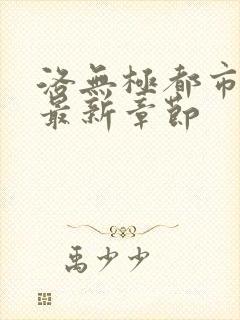 洛無極都市
最新章節
禹少少